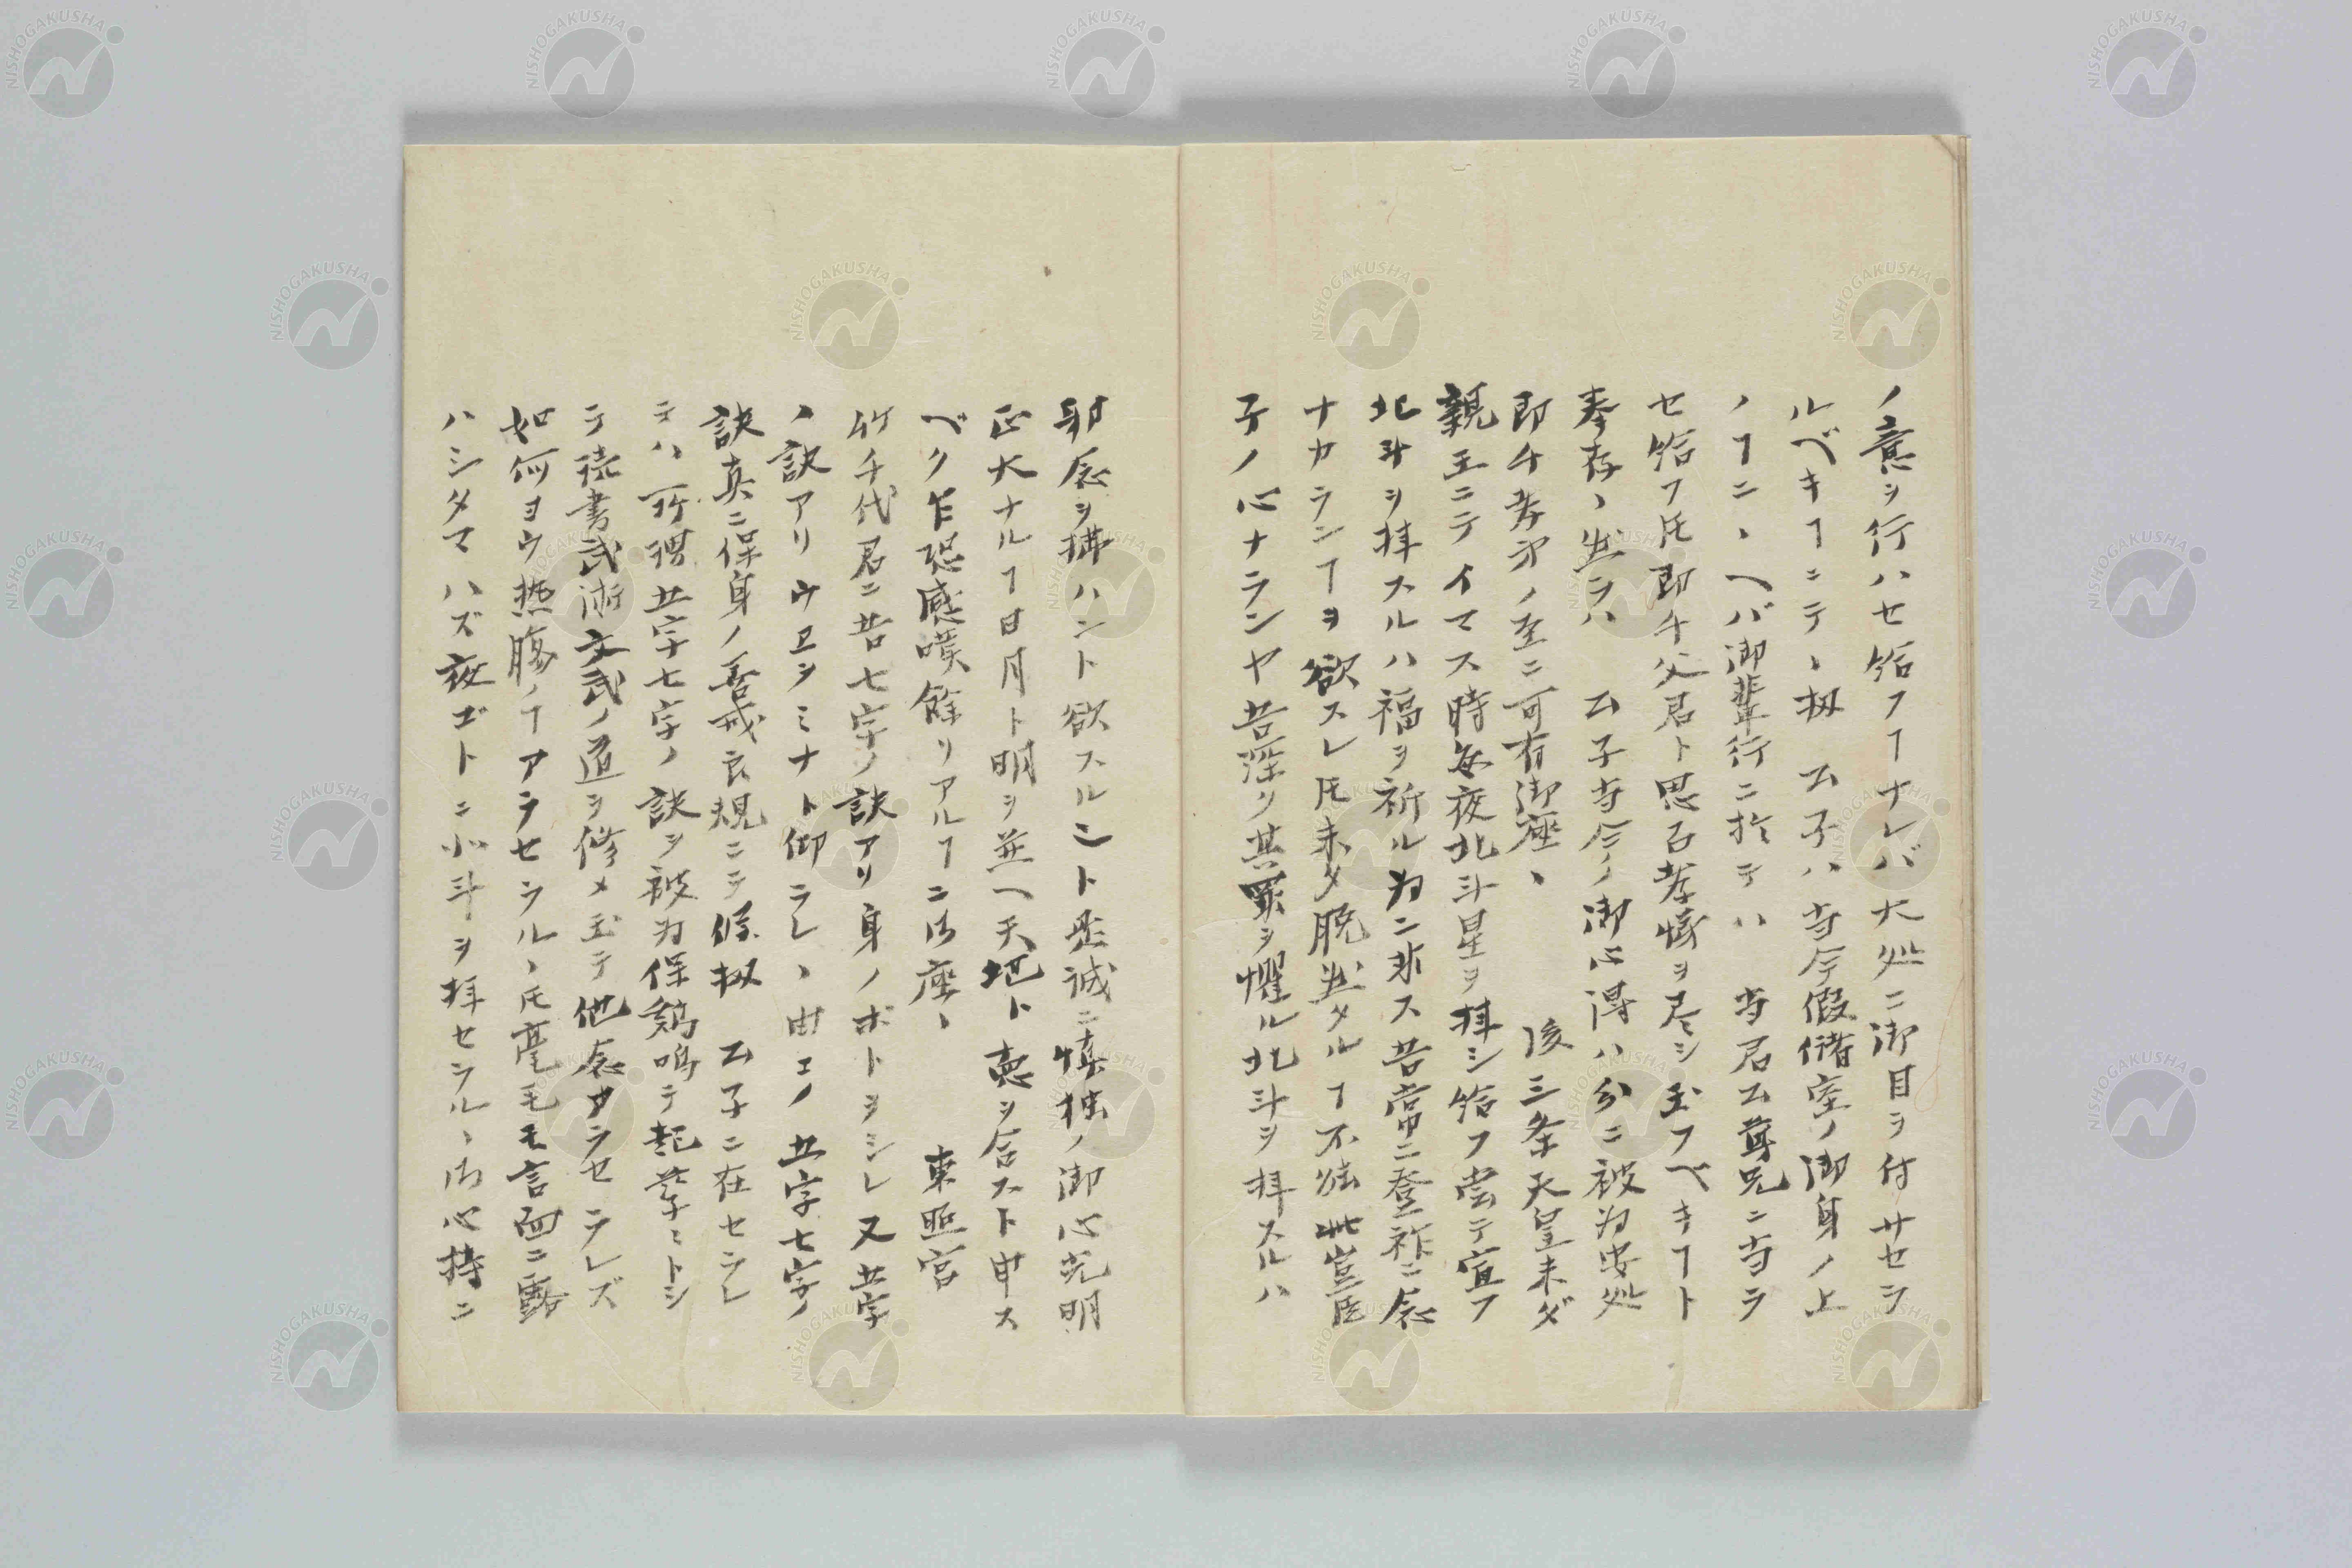 ノ意ヲ行ハセ給フヿナレバ大処ニ御目ヲ付サセラ
ルベキヿニテ、扨 公子ハ当今假儲室ノ御身ノ上
ノヿニ、ヘバ御輩行ニ於テハ 当君公尊兄ニ当ラ
セ給フ𪜈即チ父君ト思召孝悌ヲ尽シ玉フベキヿト
奉存、然ラハ 公子当今ノ御心得ハ分ニ被为安処
即チ孝弟ノ至ニ可有御座、 後三条天皇未ダ
親王ニテイマス時毎夜北斗星ヲ拝シ給フ嘗テ宣フ
北斗ヲ拝スルハ福ヲ祈ル为ニ非ス吾常ニ登祚ニ念
ナカランヿヲ欲スレ𪜈未タ脱然タルヿ不能此豈臣
子ノ心ナランヤ吾深ク其罪ヲ懼ル北斗ヲ拝スルハ
邪念ヲ掃ハント欲スルニト至誠ニ慎独ノ御心光明
正大ナルヿ日月ト明ヲ並ヘ天地ト徳ヲ合スト申ス
ベク乍恐感嘆餘リアルヿニ御座、 東照宮
竹千代君ニ昔七字ノ訣アリ身ノホトヲシレ又五字
ノ訣アリウヱヲミナト仰ラレ、由エノ五字七字ノ
訣真ニ保身ノ善戒良規ニテ偖扨 公子ニ在セラレ
テハ所謂五字七字ノ訣ヲ被为保鶏鳴テ起孳々トシ
テ読書武術文武ノ道ヲ修メ玉テ他念アラセラレズ
如何ヨウ熱腸ノヿアラセラル、𪜈毫毛モ言面ニ露
ハシタマハズ夜ゴトニ北斗ヲ拝セラル、御心持ニ